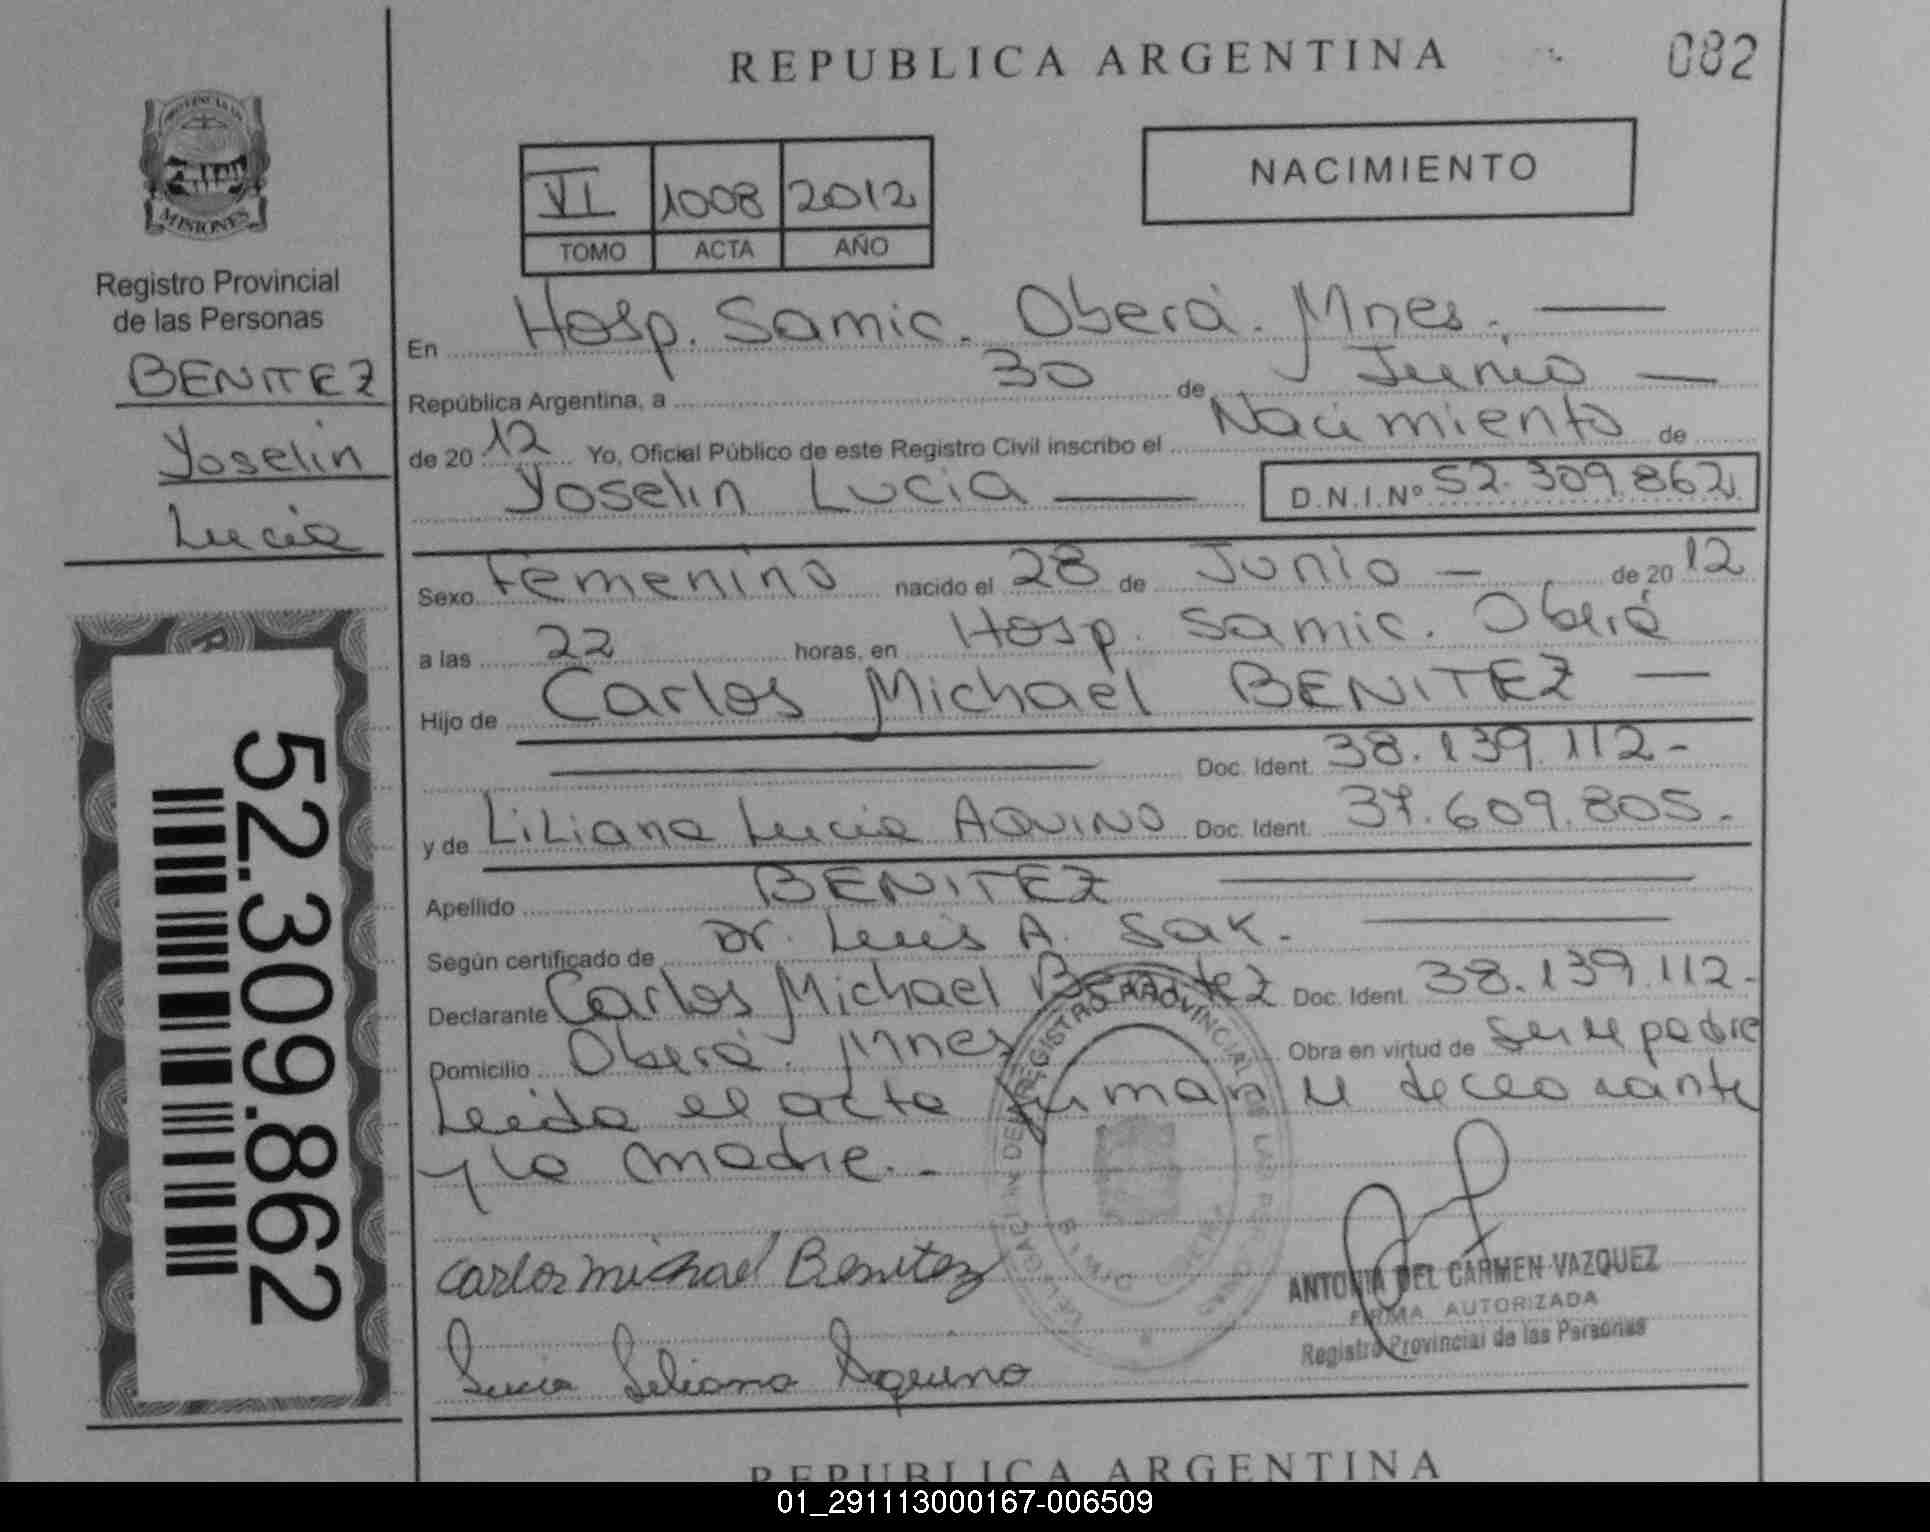 REPUBLICA ARGENTINA
082
PROVINCIA DE
MISIONES
Registro Provincial
de las Personas
BENITEZ
Yoselin
Lucia
52.309.862
VI 1008 2012
TOMO ACTA AÑO
NACIMIENTO
En Hosp. Samic. Oberá. Mnes.
República Argentina, a 30 de Junio
de 2012 Yo, Oficial Público de este Registro Civil inscribo el Nacimiento de
Yoselin Lucia D.N.I.Nº 52.309.862
Sexo Femenino nacido el 28 de Junio de 2012
a las 22 horas, en Hosp. Samic. Oberá
Hijo de Carlos Michael BENITEZ
Doc. Ident. 38.139.112-
y de LiLiana Lucia AQUINO Doc. Ident. 37.609.805.
Apellido BENITEZ
Según certificado de Dr. Luis A. Sak.
Declarante Carlos Michael Benitez Doc. Ident. 38.139.112-
Domicilio Oberá. Mnes Obra en virtud de ser el padre
Leida el acta firman el declarante
y la madre.-
REGISTRO PROVINCIAL DE LAS PERSONAS
carlos michael Benitez
Lucia Liliana Aquino
ANTONIA DEL CARMEN VAZQUEZ
FIRMA AUTORIZADA
Registro Provincial de las Personas
REPUBLICA ARGENTINA
01_291113000167-006509